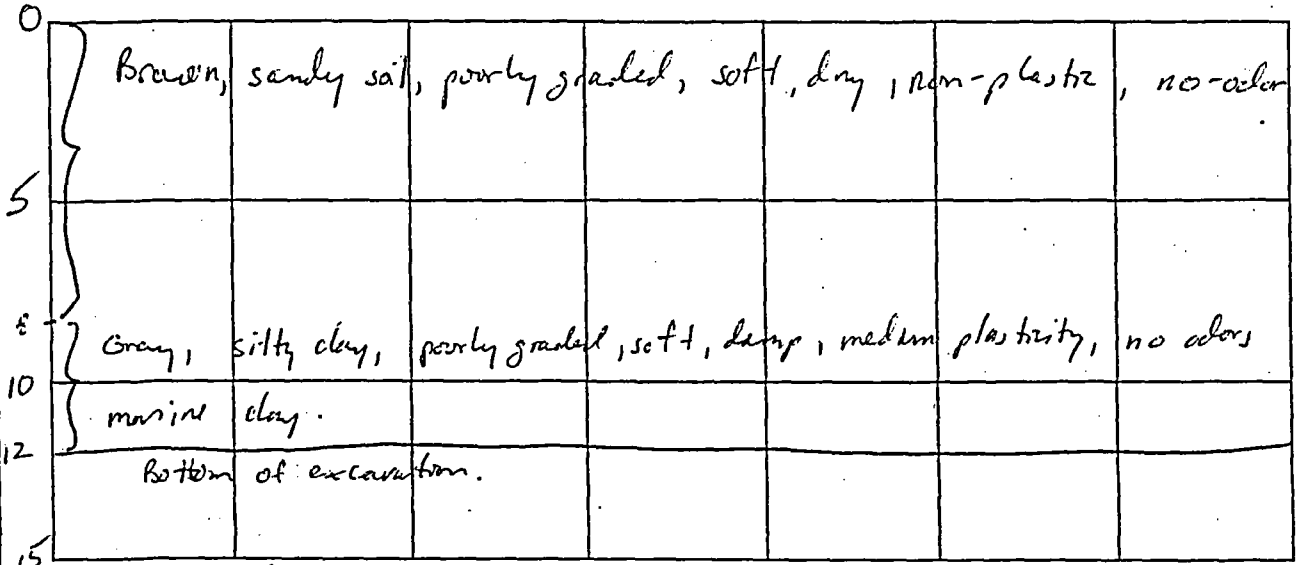 0
Brown, sandy soil, poorly graded, soft, dry, non-plastic, no-odor
5
8
Gray, silty clay, poorly graded, soft, damp, medium plasticity, no odors
10
marine clay.
12
Bottom of excavation.
15